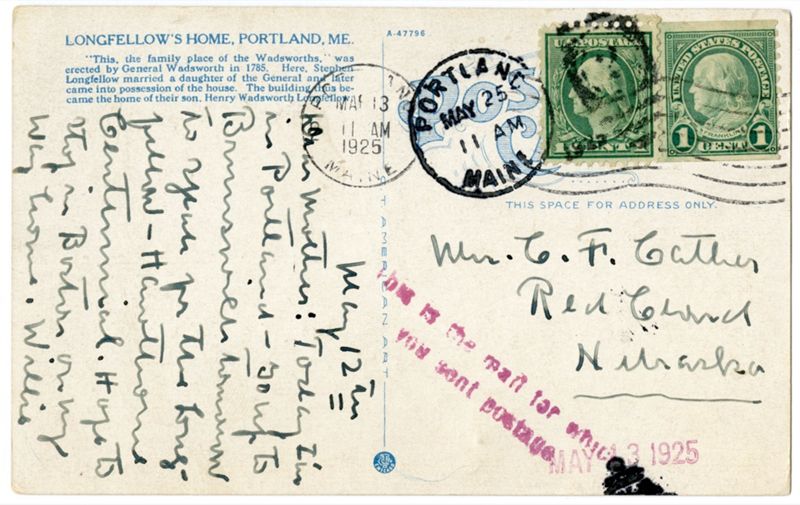 LONGFELLOW'S HOME, PORTLAND, ME.
"This, the family place of the Wadsworths, was
erected by General Wadsworth in 1785. Here, Stephen
Longfellow married a daughter of the General and later
came into possession of the house. The building has be-
came the home of their son, Henry Wadsworth Longfellow.
A-47796
MAY 13
11 AM
1925
MAINE
PORTLAND
MAY 25
11 AM
MAINE
U.S. POSTAGE
1 CENT 1
UNITED STATES POSTAGE
FRANKLIN
1 CENT 1
THIS SPACE FOR ADDRESS ONLY.
AMERICAN ART
May 12th
Dear Mother: Today I'm
in Portland - going to
Brunswick tomorrow
to speak for the Long-
fellow - Hawthorne
Centennial. Hope to
stop in Boston on my
way home. Willie
Mrs. C. F. Cather
Red Cloud
Nebraska
This is the mail for which
you sent postage
MAY 13 1925